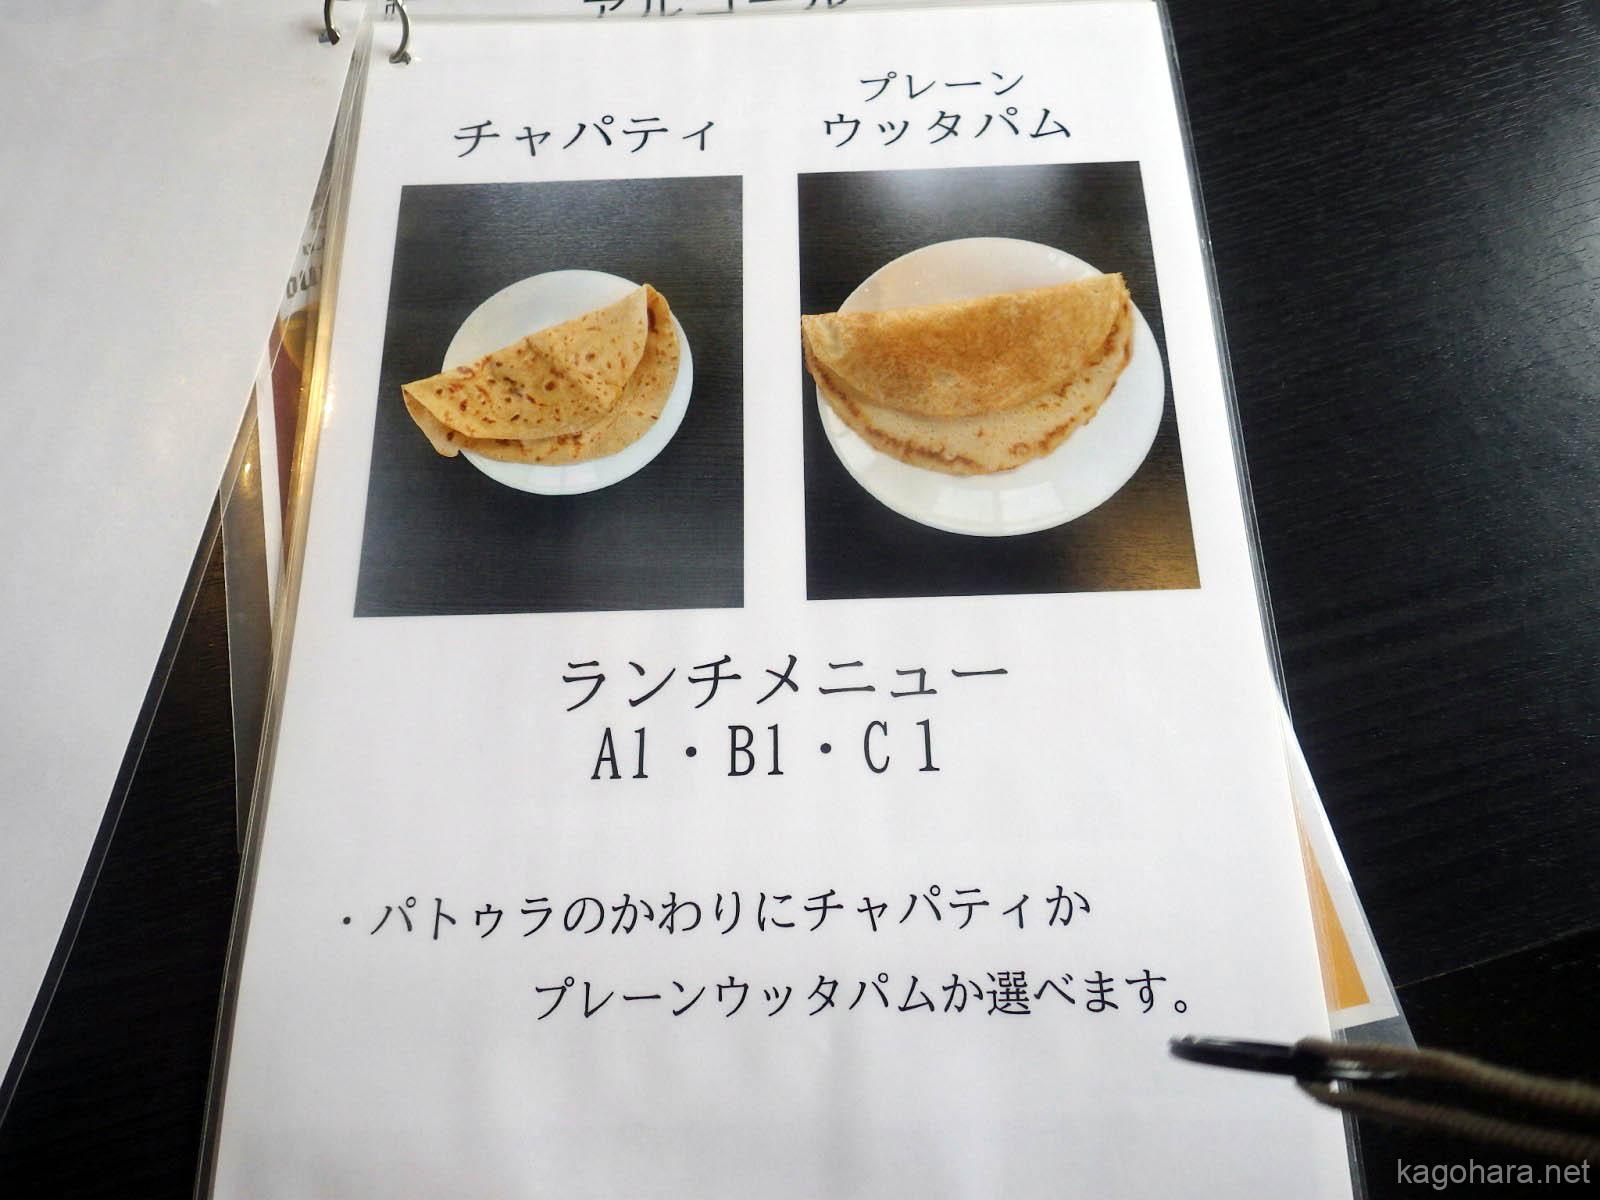 アルコール
プレーン
チャパティ
ウッタパム
ランチメニュー
A1・B1・C1
・パトゥラのかわりにチャパティか
プレーンウッタパムか選べます。
kagohara.net